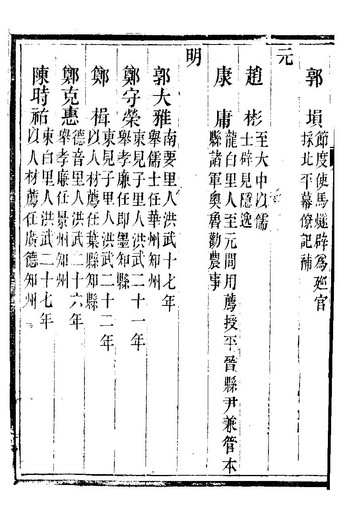 郭塤 節度使馬燧辟爲廵官
採北平幕僚記補
元
趙彬 至大中以儒
士辟見隱逸
康庸 龍白里人至元間用薦授平晉縣尹兼管本
縣諸軍奥魯勸農事
明
郭大雅 南要里人洪武十七年
舉儒士任華州知州
鄭字榮 東晃子里人洪武二十一年
舉孝廉任卽墨知縣
鄭楫 東晃子里人洪武二十二年
以人材薦任葉縣知縣
鄭克惠 德音里人洪武二十六年
舉孝廉任景州知州
陳時祐 東白里人洪武二十七年
以人材薦任廣德知州